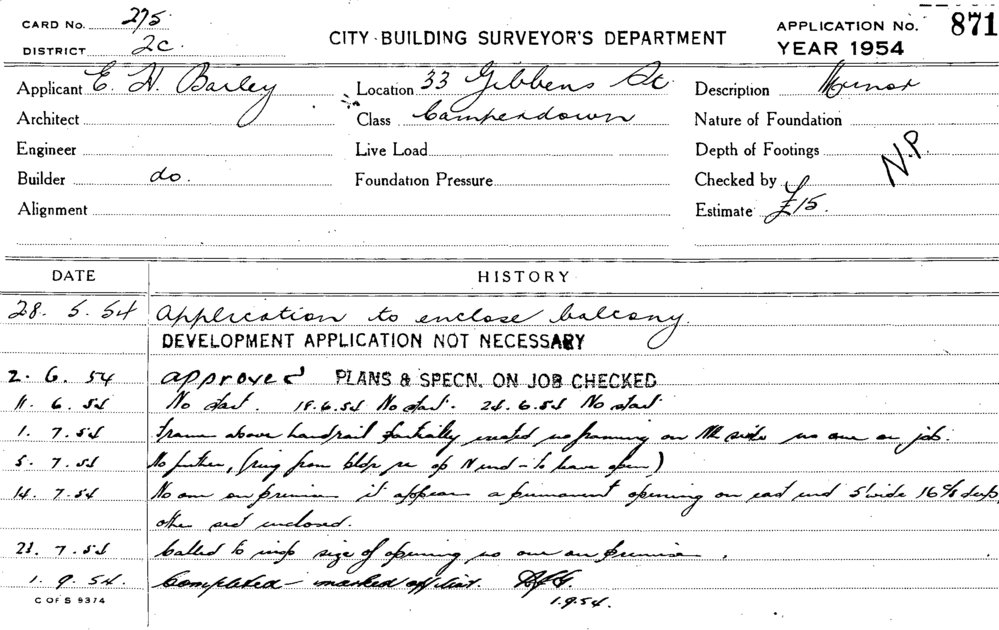 CARD No. 275
DISTRICT 2C.
CITY BUILDING SURVEYOR'S DEPARTMENT
APPLICATION No. 871
YEAR 1954
Applicant E. H. Bailey
Location 33 Gibbens St
Description Minor
Architect
Class Camperdown
Nature of Foundation
Engineer
Live Load
Depth of Footings
N.P.
Builder do.
Foundation Pressure
Checked by
Alignment
Estimate £15.
DATE HISTORY
28. 5. 54 Application to enclose balcony.
DEVELOPMENT APPLICATION NOT NECESSARY
2. 6. 54 approved PLANS & SPECN. ON JOB CHECKED
11. 6. 54 No start. 18.6.54 No start. 24.6.54 No start
1. 7. 54 frame above handrail partially erated no framing on side no one on job.
5. 7. 54 No further, (ring from bldr re op N end - to leave open)
14. 7. 54 No one on premises it appears a permanent opening on east end 5' wide deep,
other sect enclosed.
23. 7. 54 Called to insp size of opening no one on premises.
1. 9. 54. Completed - marked off list.
1.9.54.
C OF S 9374